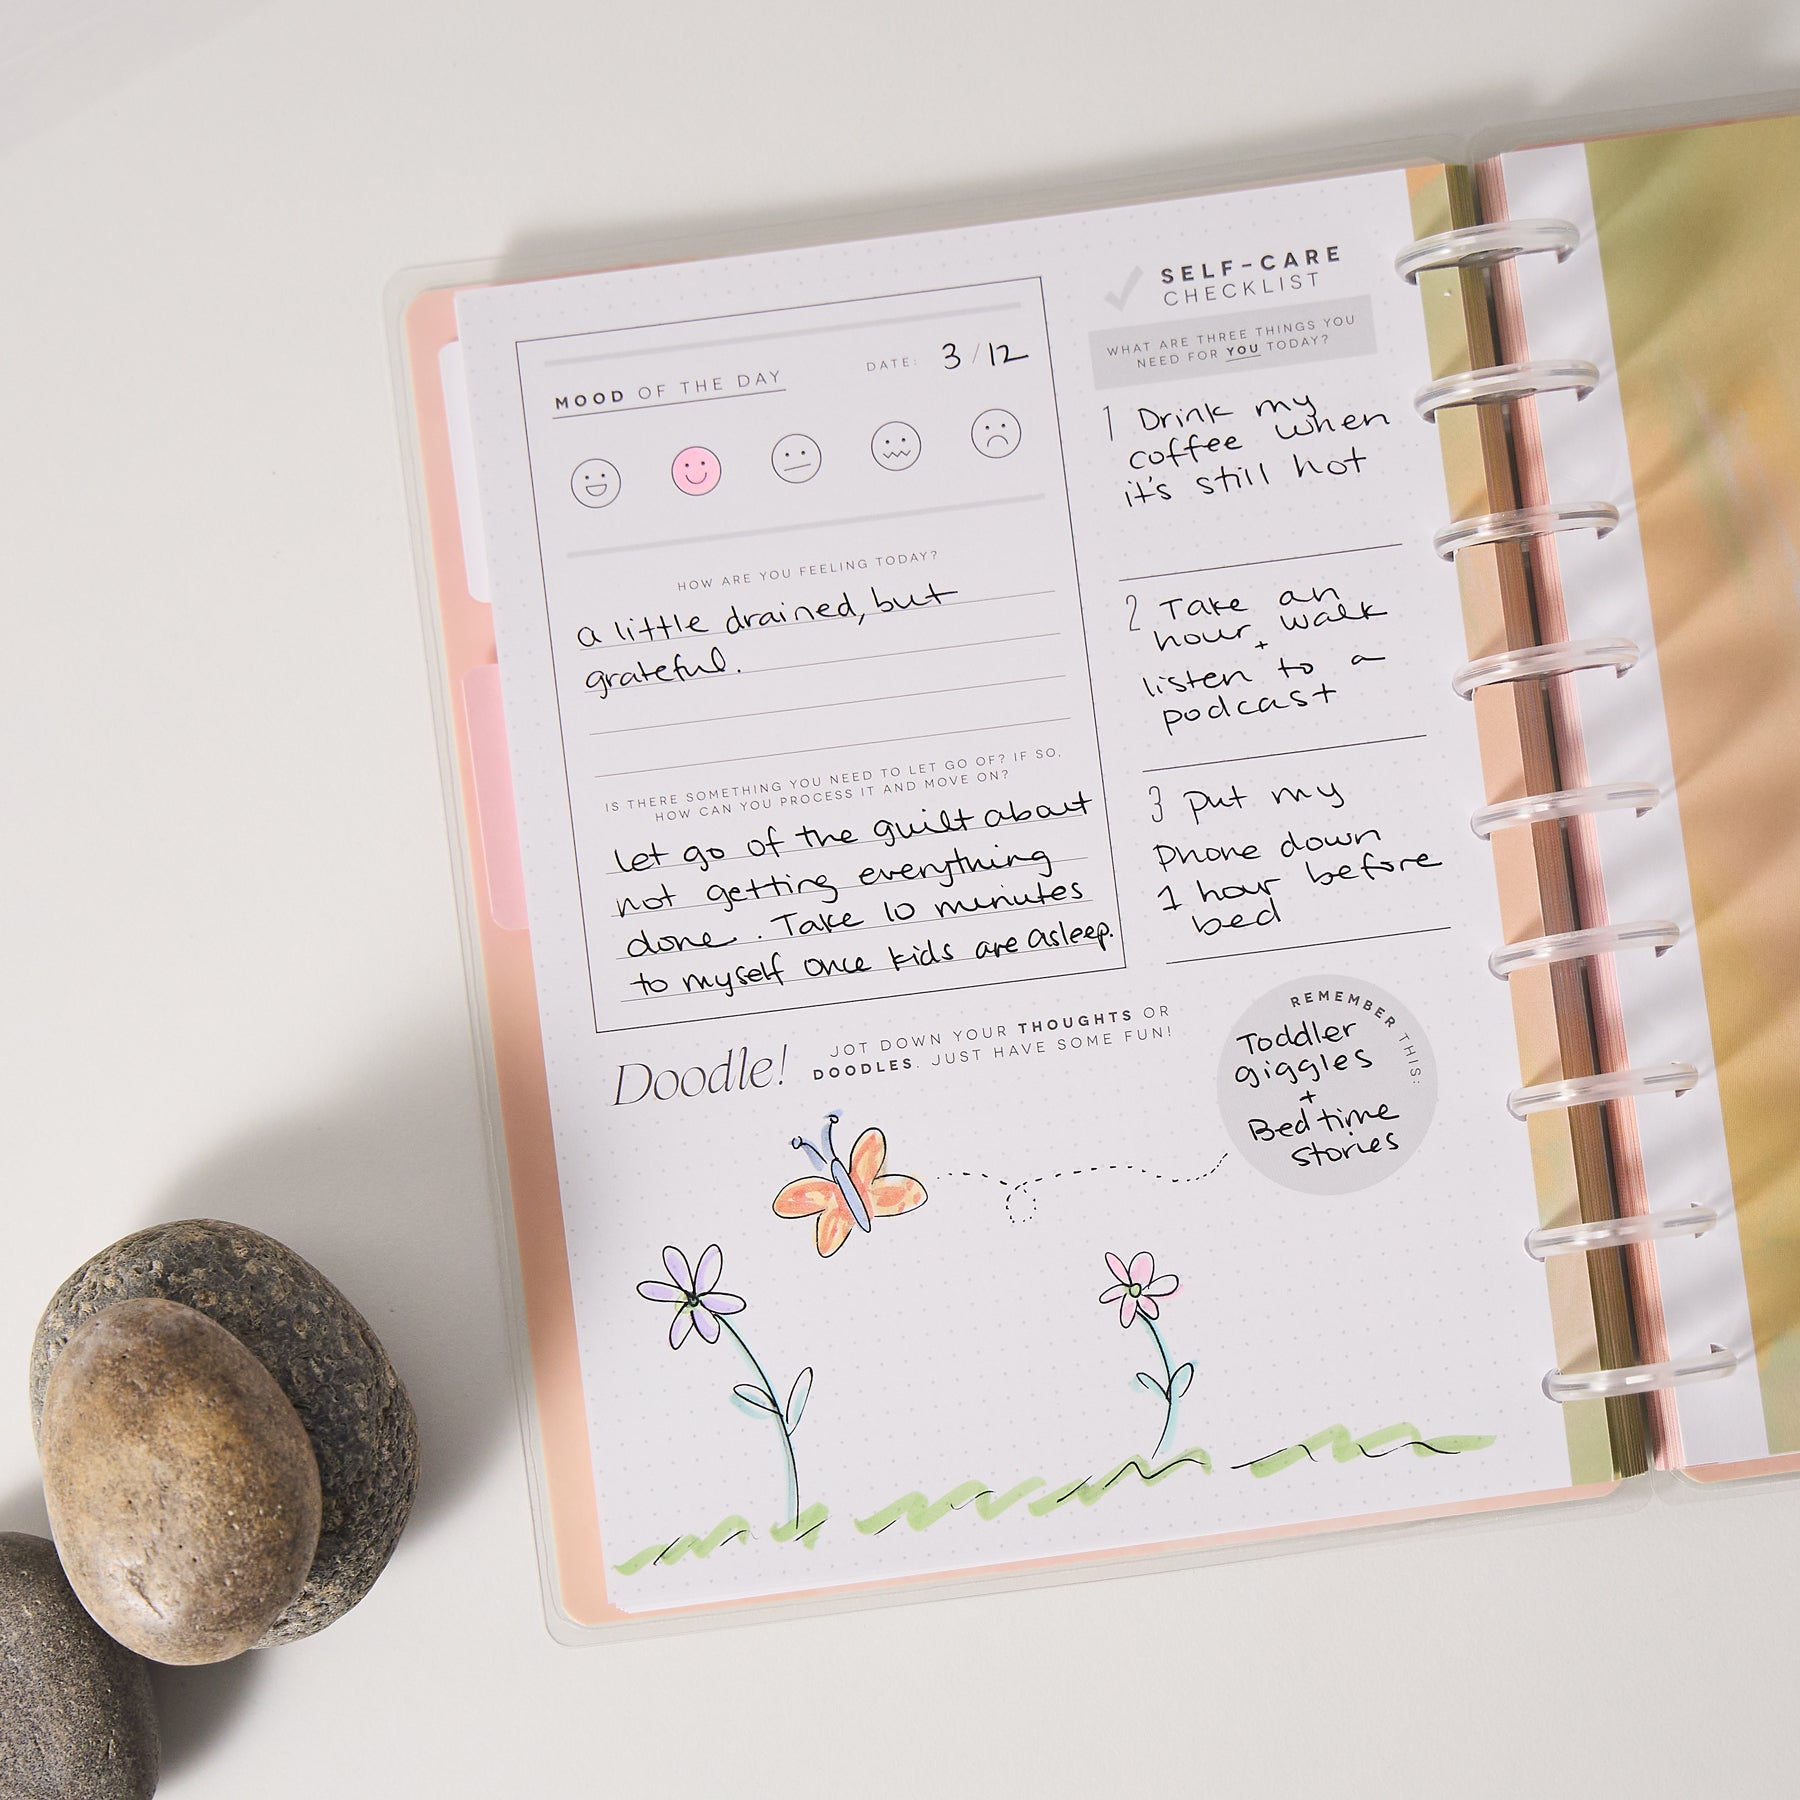 DATE: 3/12
MOOD OF THE DAY
HOW ARE YOU FEELING TODAY?
a little drained, but
grateful.
IS THERE SOMETHING YOU NEED TO LET GO OF? IF SO,
HOW CAN YOU PROCESS IT AND MOVE ON?
let go of the guilt about
not getting everything
done. Take 10 minutes
to myself once kids are asleep.
SELF-CARE
CHECKLIST
WHAT ARE THREE THINGS YOU
NEED FOR YOU TODAY?
1 Drink my
coffee when
it's still hot
2 Take an
hour walk
+
listen to a
podcast
3 Put my
Phone down
1 hour before
bed
Doodle!
JOT DOWN YOUR THOUGHTS OR
DOODLES. JUST HAVE SOME FUN!
REMEMBER THIS:
Toddler
giggles
+
Bedtime
stories